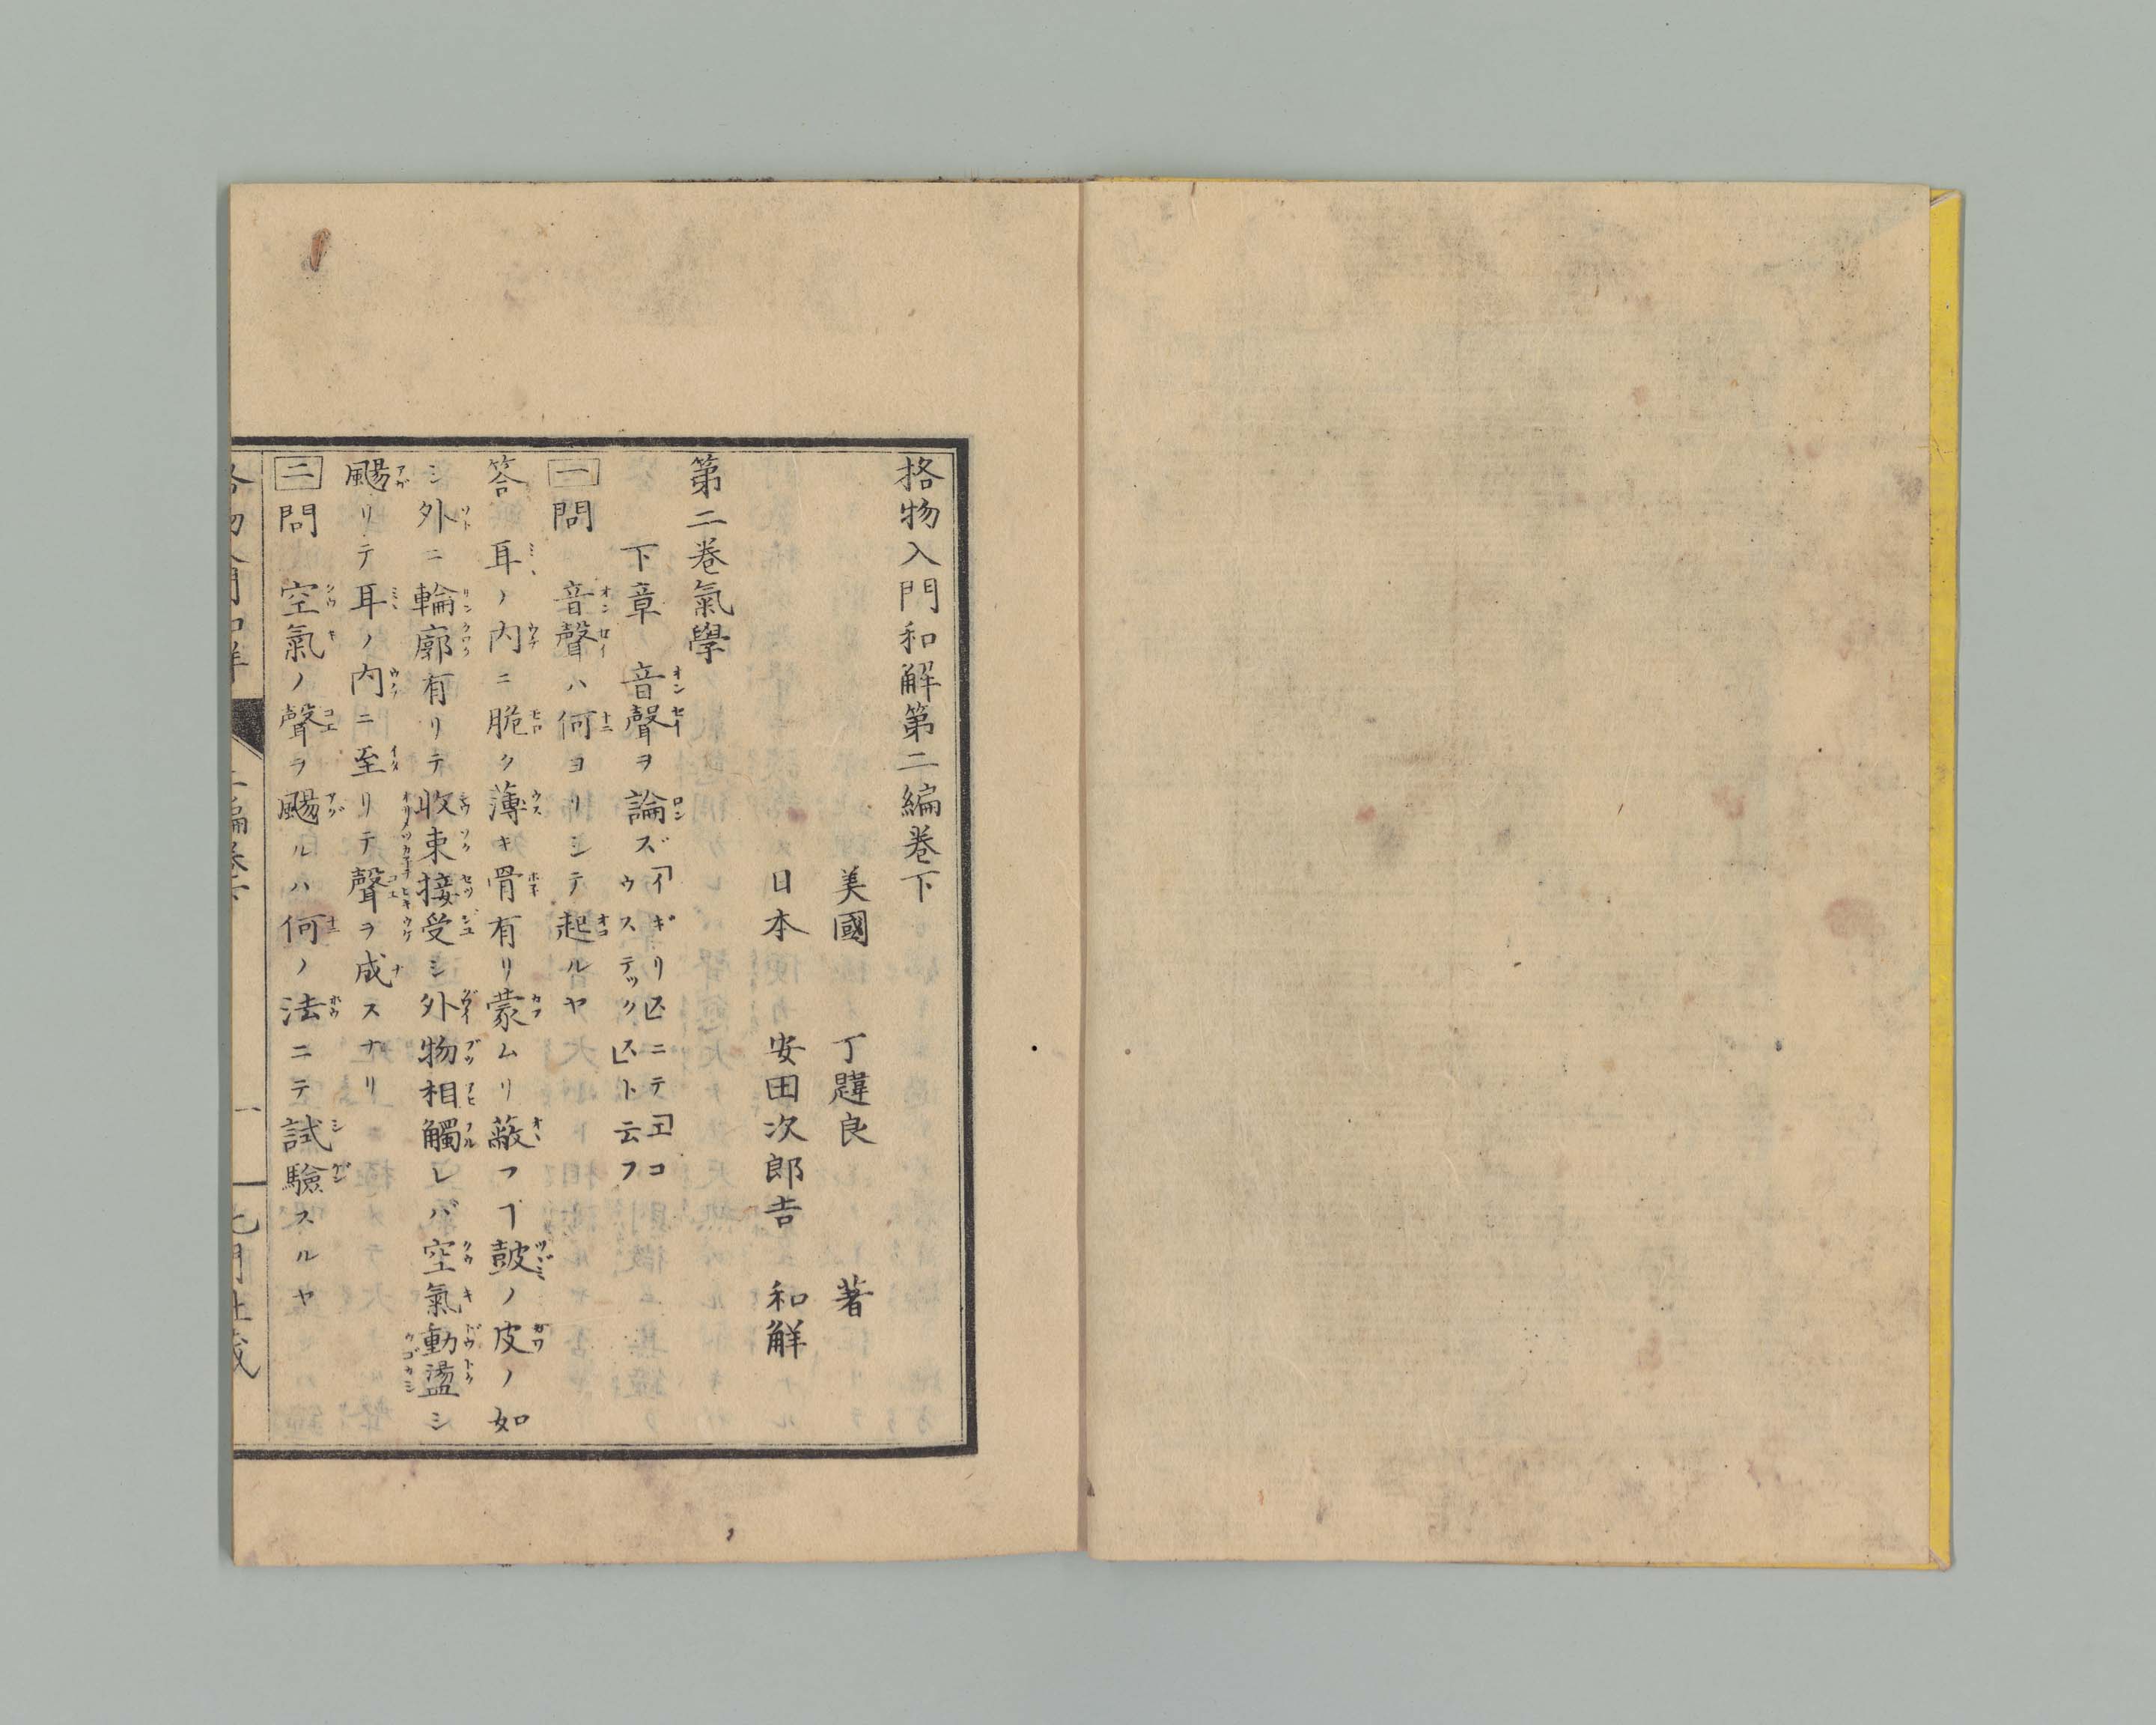 格物入門和解第二編卷下
美國 丁韙良 著
日本 安田次郎吉 和解
第二卷氣學
下章 音聲ヲ論ズ「イギリス」ニテ「エコウステックス」ト云フ
一 問 音聲ハ何ヨリシテ起ルヤ
答 耳ノ內ニ脆ク薄キ骨有リ蒙ムリ蔽フヿ鼓ノ皮ノ如
シ外ニ輪廓有リテ收束接受シ外物相觸レバ空氣動盪シ
颺リテ耳ノ內ニ至リテ聲ヲ成スナリ
二 問 空氣ノ聲ヲ颺ルハ何ノ法ニテ試驗スルヤ